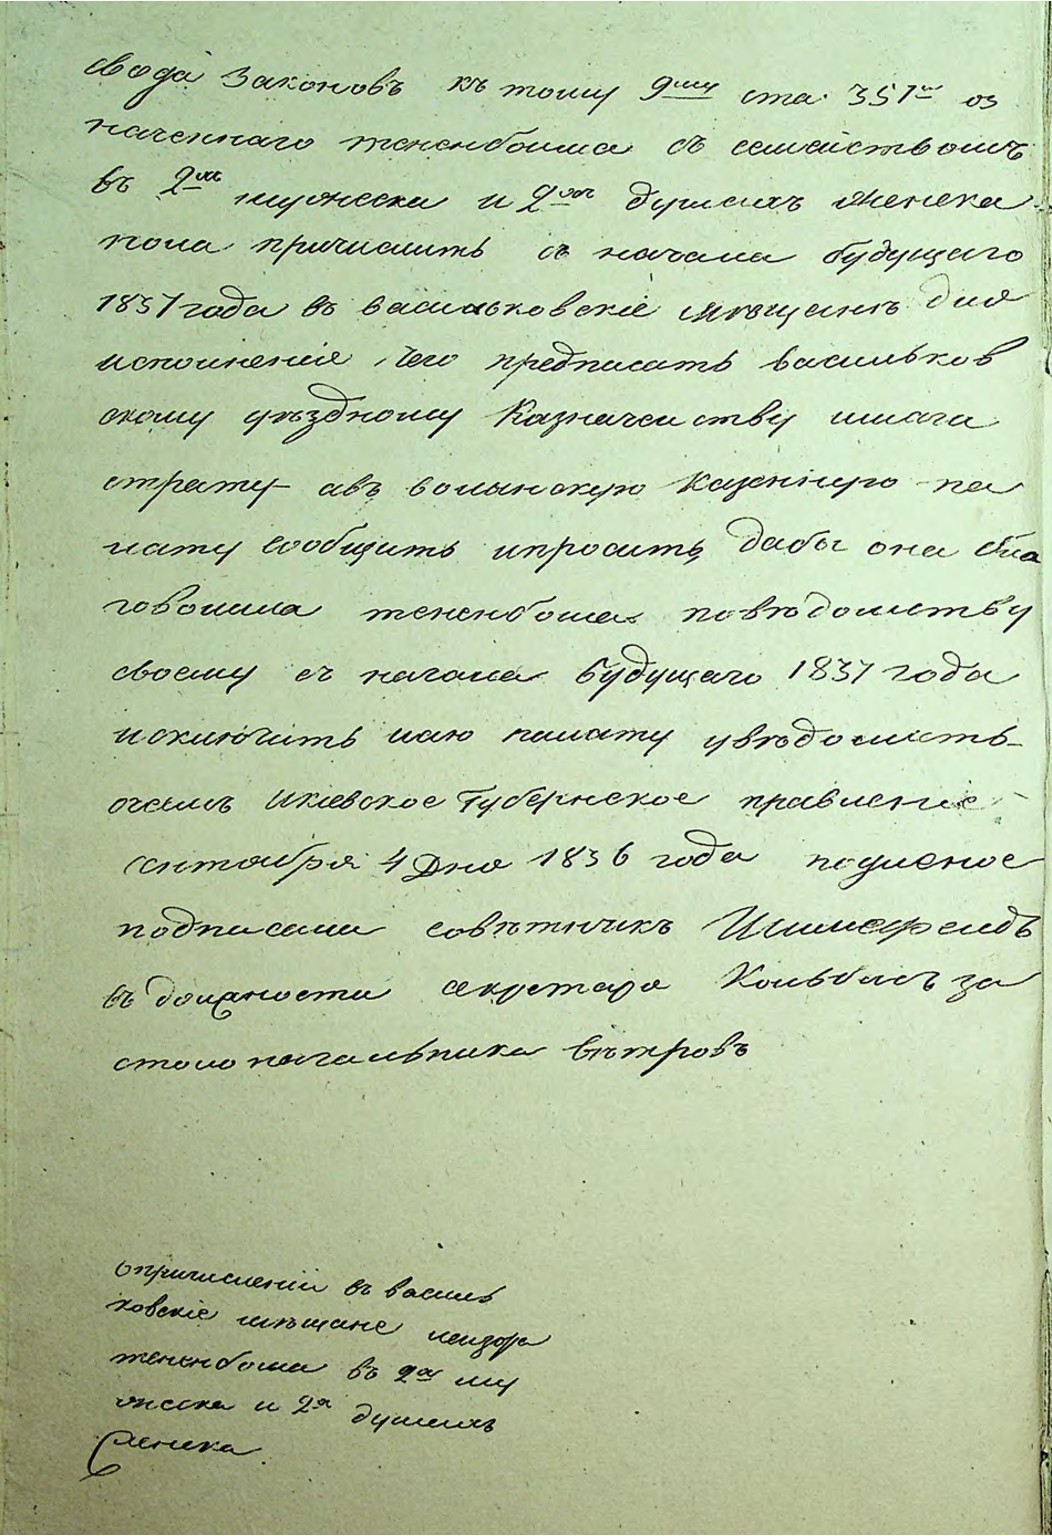 свода Законовъ къ тому 9му ста. 351й оз
наченнаго тененбоима съ семействомъ
въ 2хъ мужеска и 2хъ душахъ Женска
пола причислить съ начала будущаго
1837 года въ васильковскіе мѣщанѣ для
исполненія чего предписать васильков
скому уѣздному Казначейству имаги
страту авъ волынскую Казенную па
лату сообщить ипросить, дабы она бла
говолила тененбома повѣдомству
своему съ начала будущаго 1837 года
исключить и палату увѣдомить
очемъ Икіевское Губернское правленіе
сентября 4 Дня 1836 года подленое
подписали совѣтникъ
въ должности секретара за
столоначальника вѣтровъ
опричисленіи въ василь
ковскіе мѣщане лейзора
тененбома въ 2хъ му
жеска и 2хъ душахъ
женска